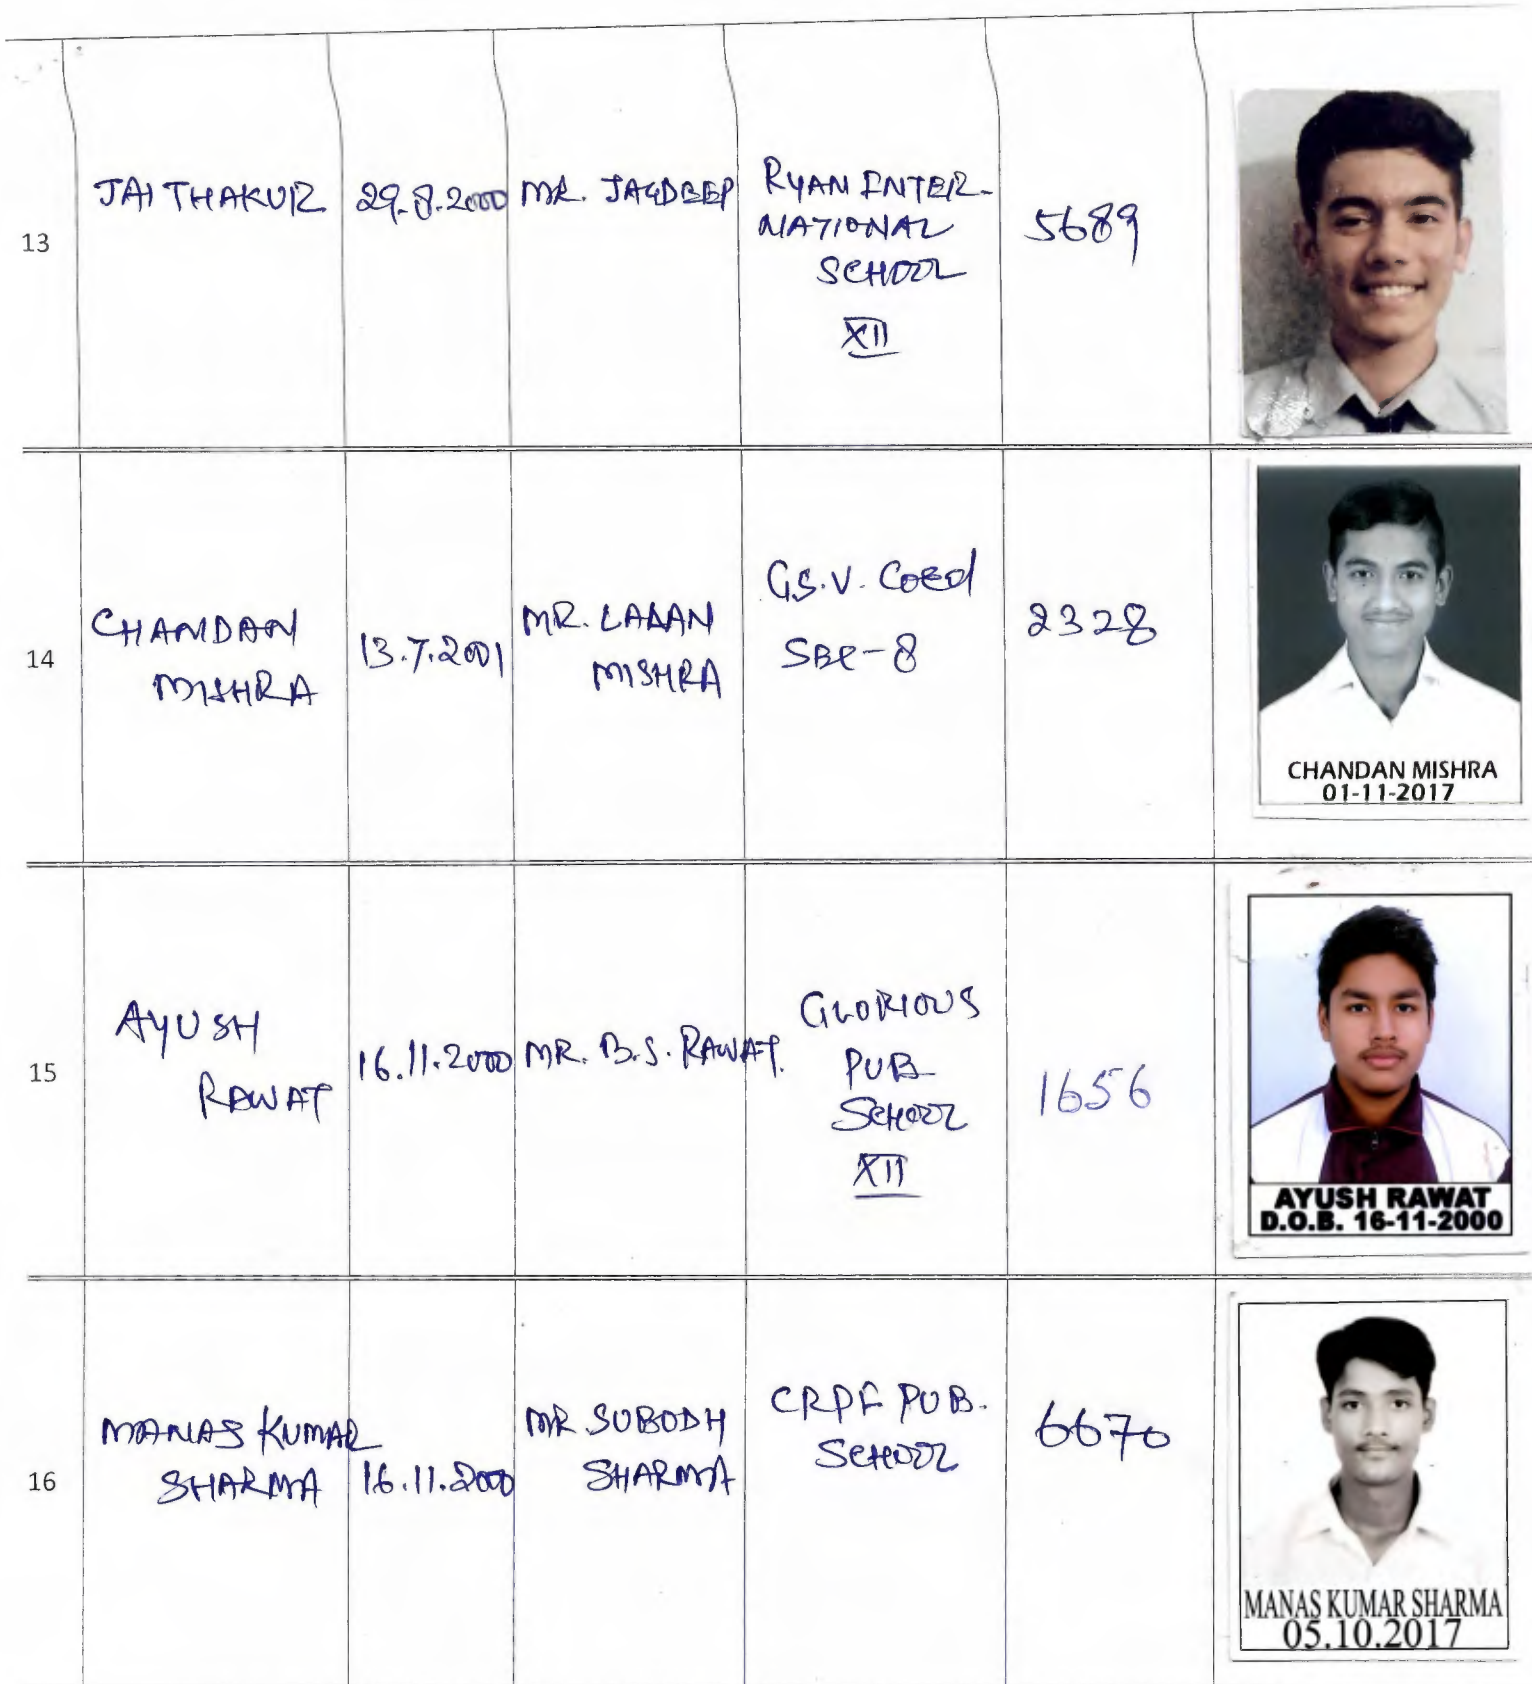 13
JAI THAKUR
29.8.2000
MR. JAGDEEP
RYAN INTER-
NATIONAL
SCHOOL
XII
5689
14
CHANDAN
MISHRA
13.7.2001
MR. LALAN
MISHRA
G.S.V. Coed
2328
CHANDAN MISHRA
01-11-2017
15
AYUSH
RAWAT
16.11.2000
MR. B.S. RAWAT.
GLORIOUS
PUB
SCHOOL
XII
1656
AYUSH RAWAT
D.O.B. 16-11-2000
16
MANAS KUMAR
SHARMA
16.11.2000
MR SUBODH
SHARMA
CRPF PUB.
SCHOOL
6670
MANAS KUMAR SHARMA
05.10.2017